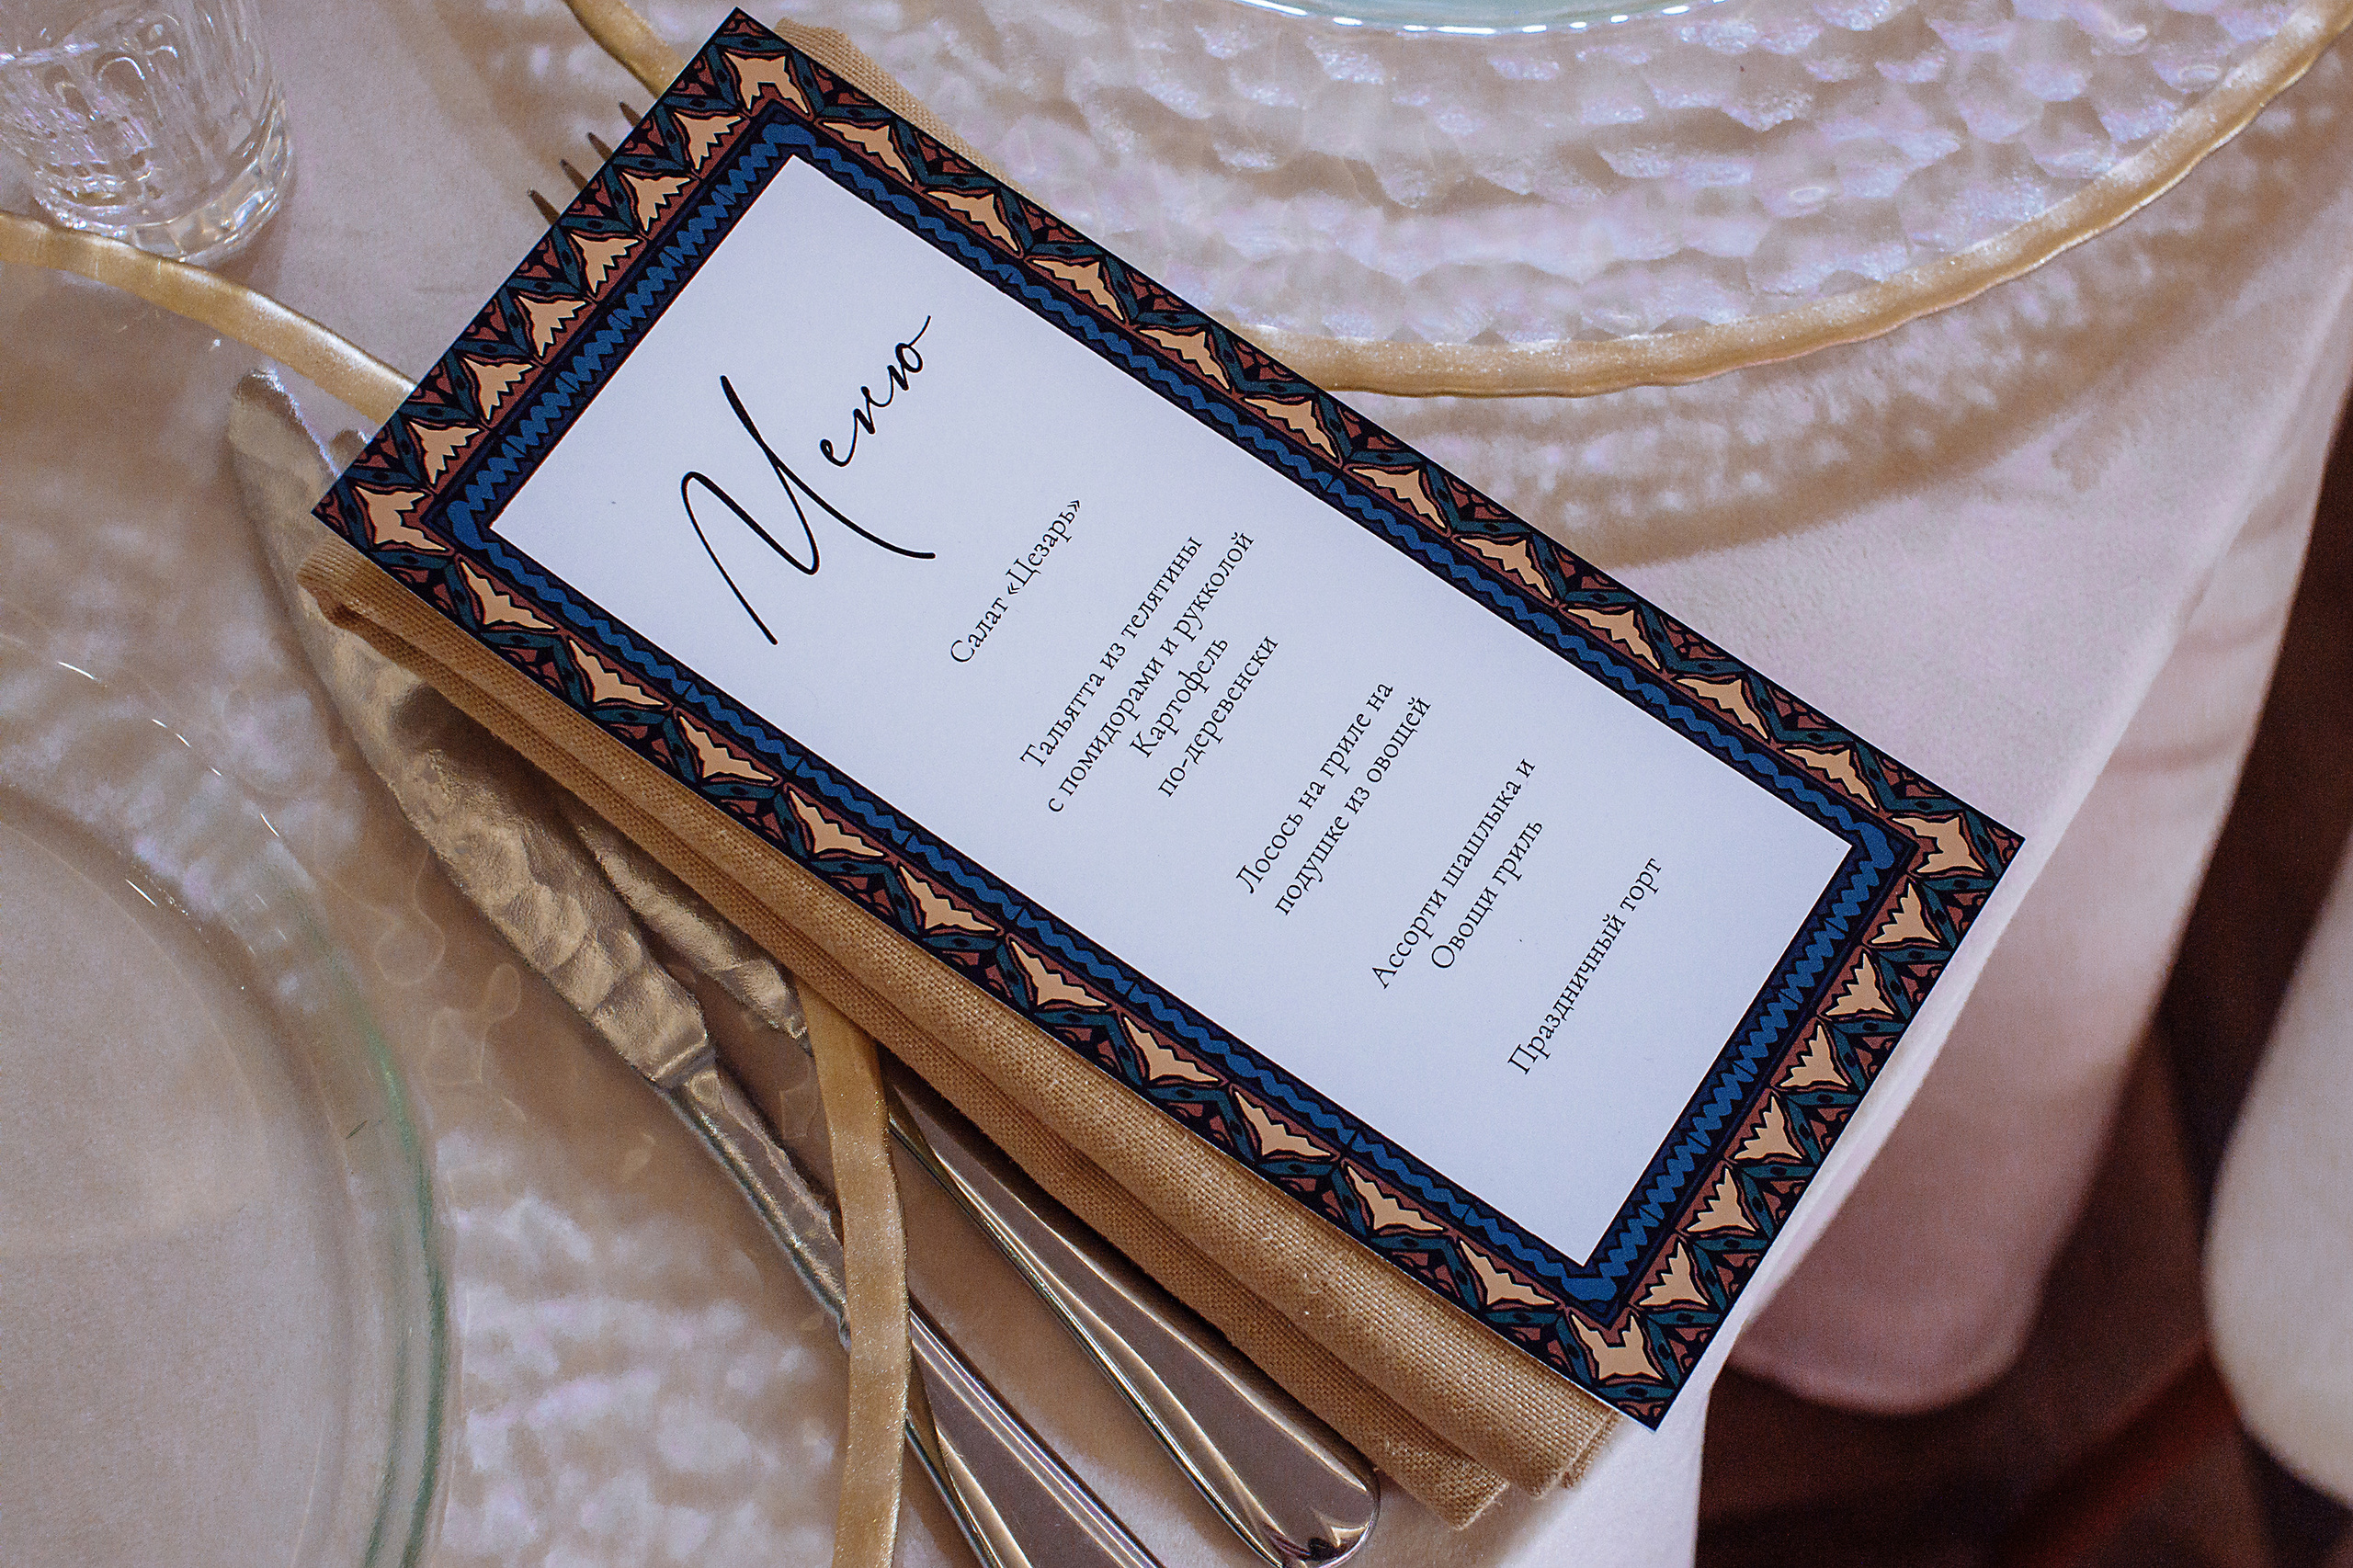 Меню
Салат «Цезарь»
Тальятта из телятины
с помидорами и рукколой
Картофель
по-деревенски
Лосось на гриле на
подушке из овощей
Ассорти шашлыка и
Овощи гриль
Праздничный торт